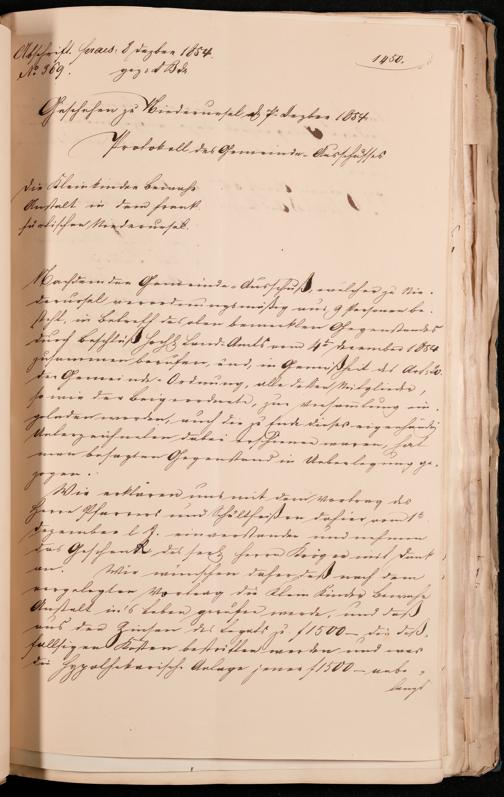 Abschrift. praes: 8 Dezbr 1854.
1450.
No. 369.
Geschehen zu Niederursel, d 7. Dezber 1854
Protokoll des Gemeinde-Ausschusses
Die Kleinkinder bewahr
Anstalt in dem frank-
furtischen Niederursel.
Nachdem der Gemeinde-Ausschuß, welcher zu Nie-
derursel verordnungsmäßig aus 9 Personen be-
steht, in Betreff des oben bemerkten Gegenstandes
durch Beschluß Land-Amts vom 4t December 1854
zusammen berufen, und, in Gemäßheit des
der Gemeinde-Ordnung, alle dessen Mitglieder,
so wie der beigeordnete, zur Versammlung ein-
geladen worden, auch die zu Ende dieses eigenhändig
Unterzeichneten dabei erschienen waren, hat
man besagten Gegenstand in Ueberlegung ge-
zogen.
Wir erklären uns mit dem Vortrag des
Herrn Pfarrers und Schultheißen dahier vom 1t
Dezember l. J. einverstanden und nehmen
das Geschenk des seel. Herrn Krüger mit Dank
an. Wir wünschen daher daß nach dem
vorgelegten Vortrag die Klein Kinder bewahr
Anstalt in's Leben gerufen werde, und daß
aus den Zinsen des Legats zu f 1500 — die deß-
fallsigen Kosten bestritten werden und was
die hypothekarische Anlage jener f 1500 — anbe-
langt